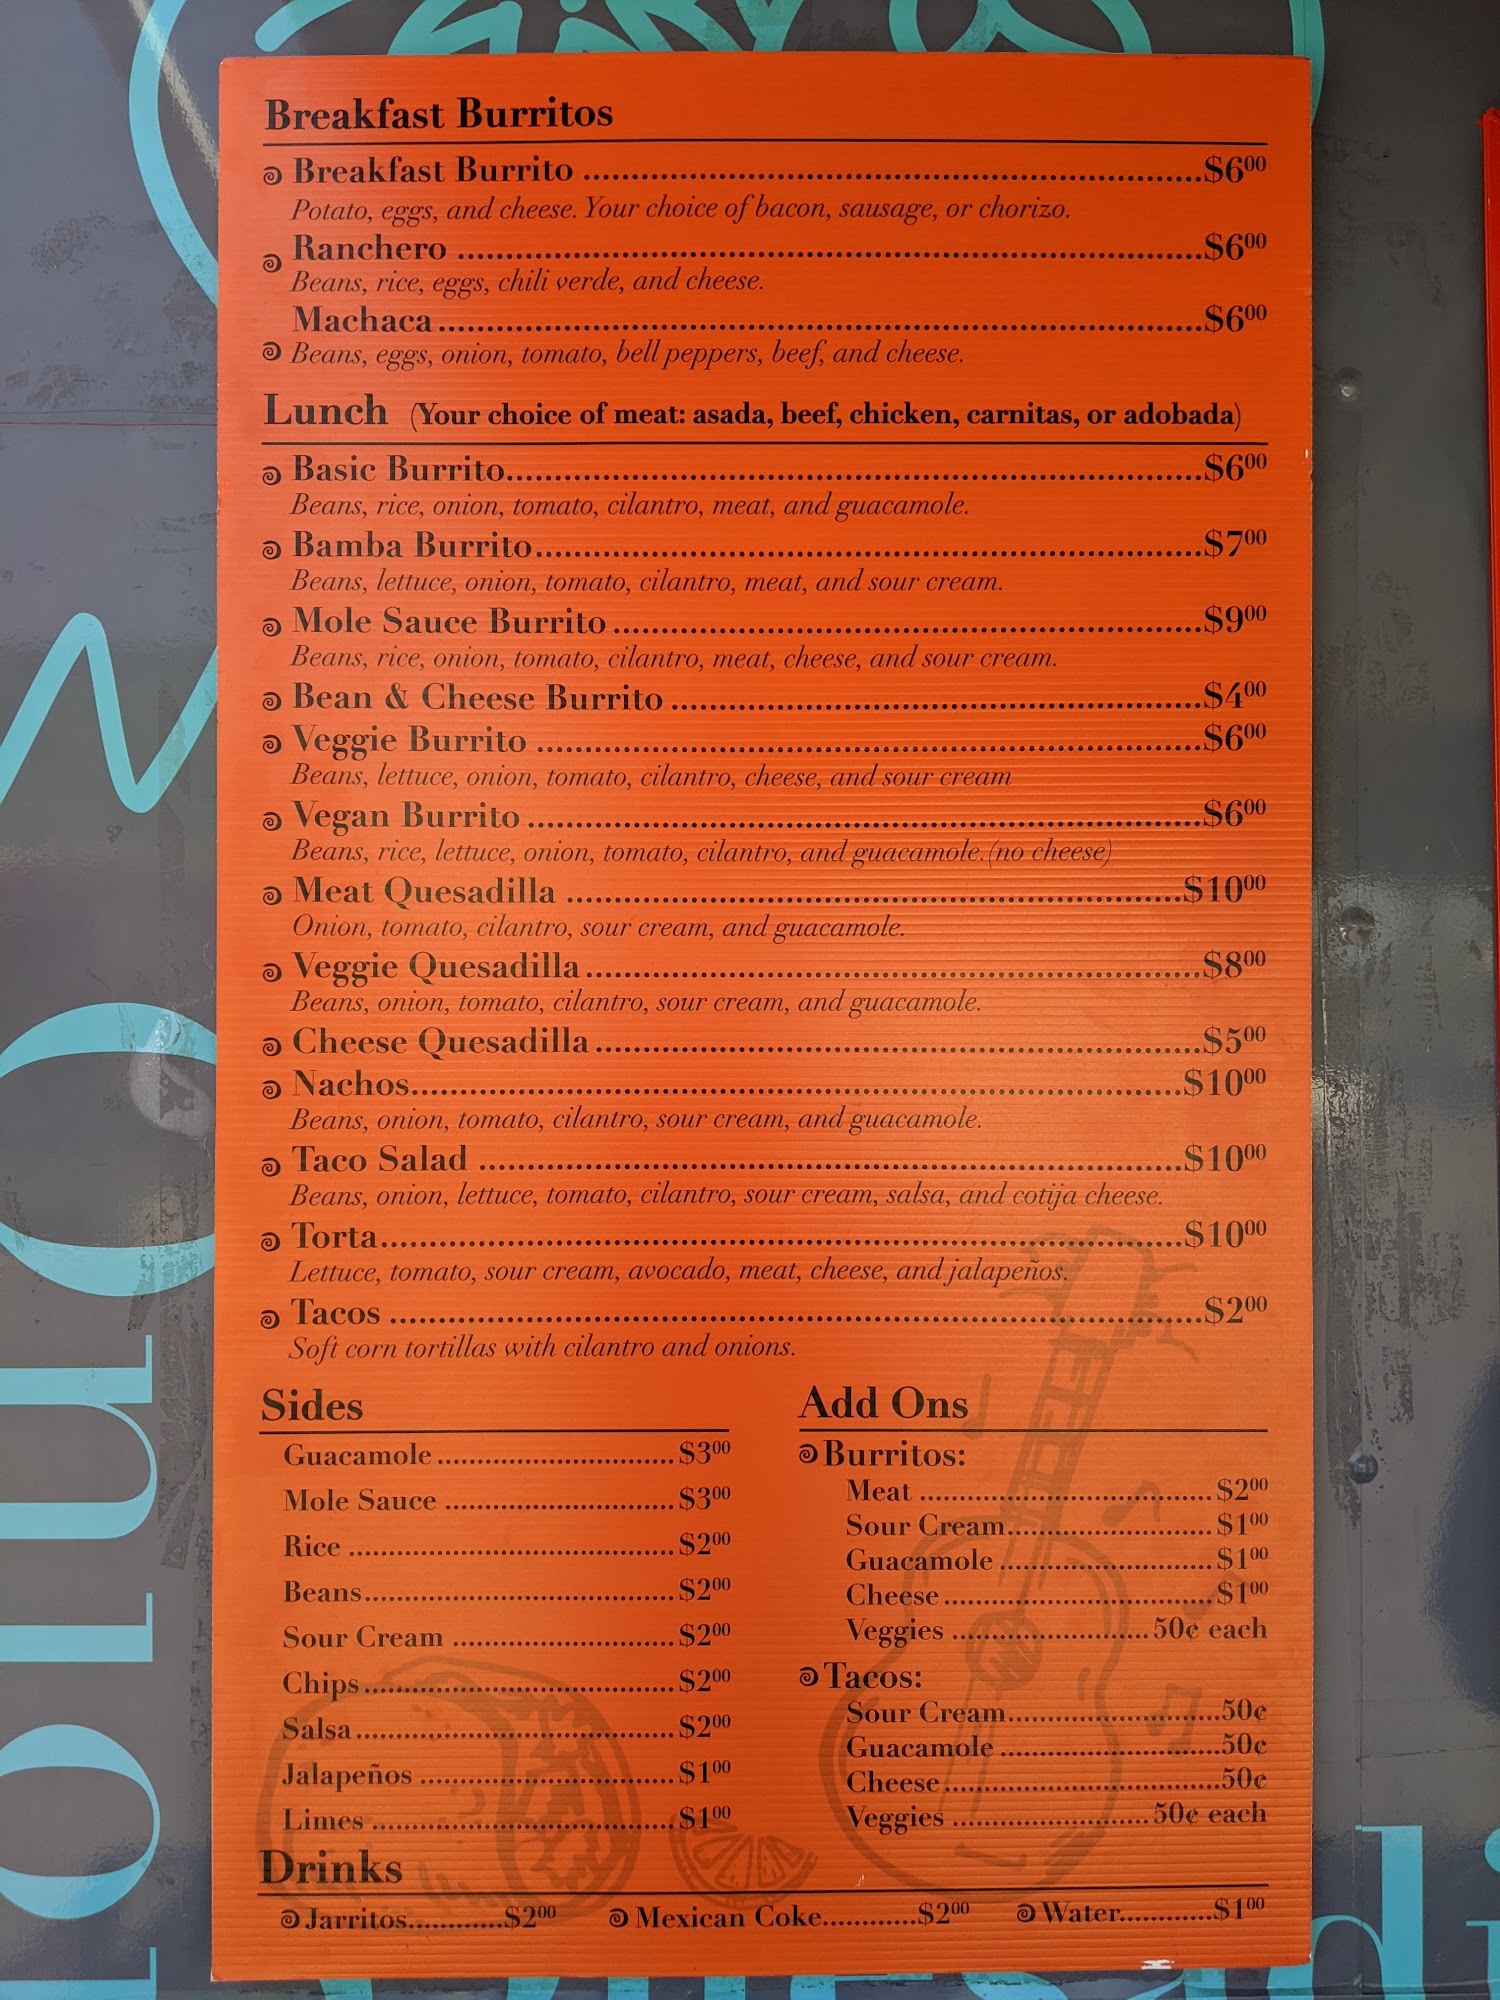 Breakfast Burritos
Breakfast Burrito ........ $6⁰⁰
Potato, eggs, and cheese. Your choice of bacon, sausage, or chorizo.
Ranchero ........ $6⁰⁰
Beans, rice, eggs, chili verde, and cheese.
Machaca ........ $6⁰⁰
Beans, eggs, onion, tomato, bell peppers, beef, and cheese.
Lunch (Your choice of meat: asada, beef, chicken, carnitas, or adobada)
Basic Burrito ........ $6⁰⁰
Beans, rice, onion, tomato, cilantro, meat, and guacamole.
Bamba Burrito ........ $7⁰⁰
Beans, lettuce, onion, tomato, cilantro, meat, and sour cream.
Mole Sauce Burrito ........ $9⁰⁰
Beans, rice, onion, tomato, cilantro, meat, cheese, and sour cream.
Bean & Cheese Burrito ........ $4⁰⁰
Veggie Burrito ........ $6⁰⁰
Beans, lettuce, onion, tomato, cilantro, cheese, and sour cream
Vegan Burrito ........ $6⁰⁰
Beans, rice, lettuce, onion, tomato, cilantro, and guacamole.(no cheese)
Meat Quesadilla ........ $10⁰⁰
Onion, tomato, cilantro, sour cream, and guacamole.
Veggie Quesadilla ........ $8⁰⁰
Beans, onion, tomato, cilantro, sour cream, and guacamole.
Cheese Quesadilla ........ $5⁰⁰
Nachos ........ $10⁰⁰
Beans, onion, tomato, cilantro, sour cream, and guacamole.
Taco Salad ........ $10⁰⁰
Beans, onion, lettuce, tomato, cilantro, sour cream, salsa, and cotija cheese.
Torta ........ $10⁰⁰
Lettuce, tomato, sour cream, avocado, meat, cheese, and jalapeños.
Tacos ........ $2⁰⁰
Soft corn tortillas with cilantro and onions.
Sides
Guacamole ........ $3⁰⁰
Mole Sauce ........ $3⁰⁰
Rice ........ $2⁰⁰
Beans ........ $2⁰⁰
Sour Cream ........ $2⁰⁰
Chips ........ $2⁰⁰
Salsa ........ $2⁰⁰
Jalapeños ........ $1⁰⁰
Limes ........ $1⁰⁰
Add Ons
Burritos:
Meat ........ $2⁰⁰
Sour Cream ........ $1⁰⁰
Guacamole ........ $1⁰⁰
Cheese ........ $1⁰⁰
Veggies ........ 50¢ each
Tacos:
Sour Cream ........ 50¢
Guacamole ........ 50¢
Cheese ........ 50¢
Veggies ........ 50¢ each
Drinks
Jarritos ........ $2⁰⁰ Mexican Coke ........ $2⁰⁰ Water ........ $1⁰⁰